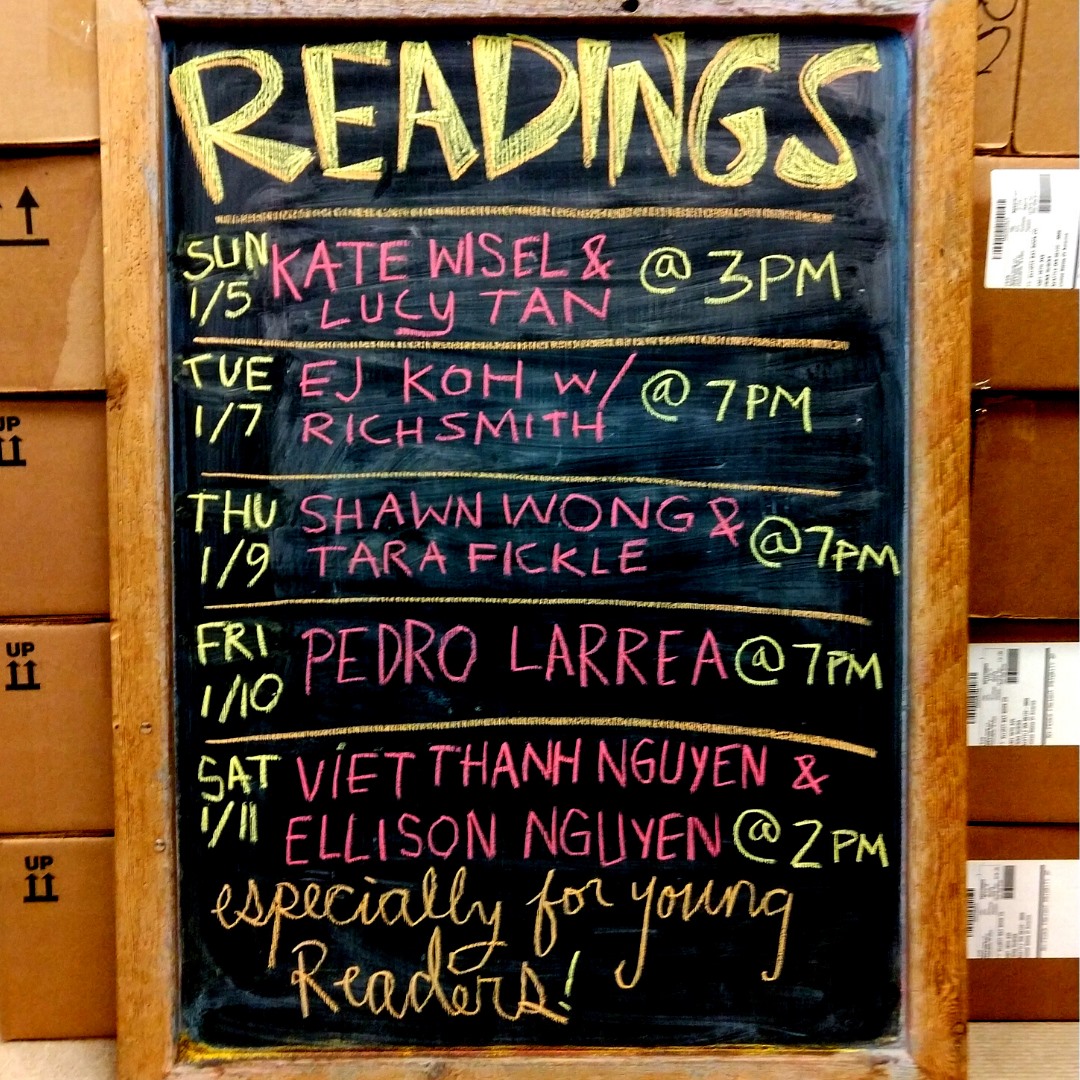 READINGS
SUN KATE WISEL & @ 3PM
1/5 LUCY TAN
TUE EJ KOH W/ @ 7PM
1/7 RICH SMITH
THU SHAWN WONG & @7PM
1/9 TARA FICKLE
FRI PEDRO LARREA @7PM
1/10
SAT VIET THANH NGUYEN &
1/11 ELLISON NGUYEN @ 2PM
especially for young
Readers!
UP
UP
UP